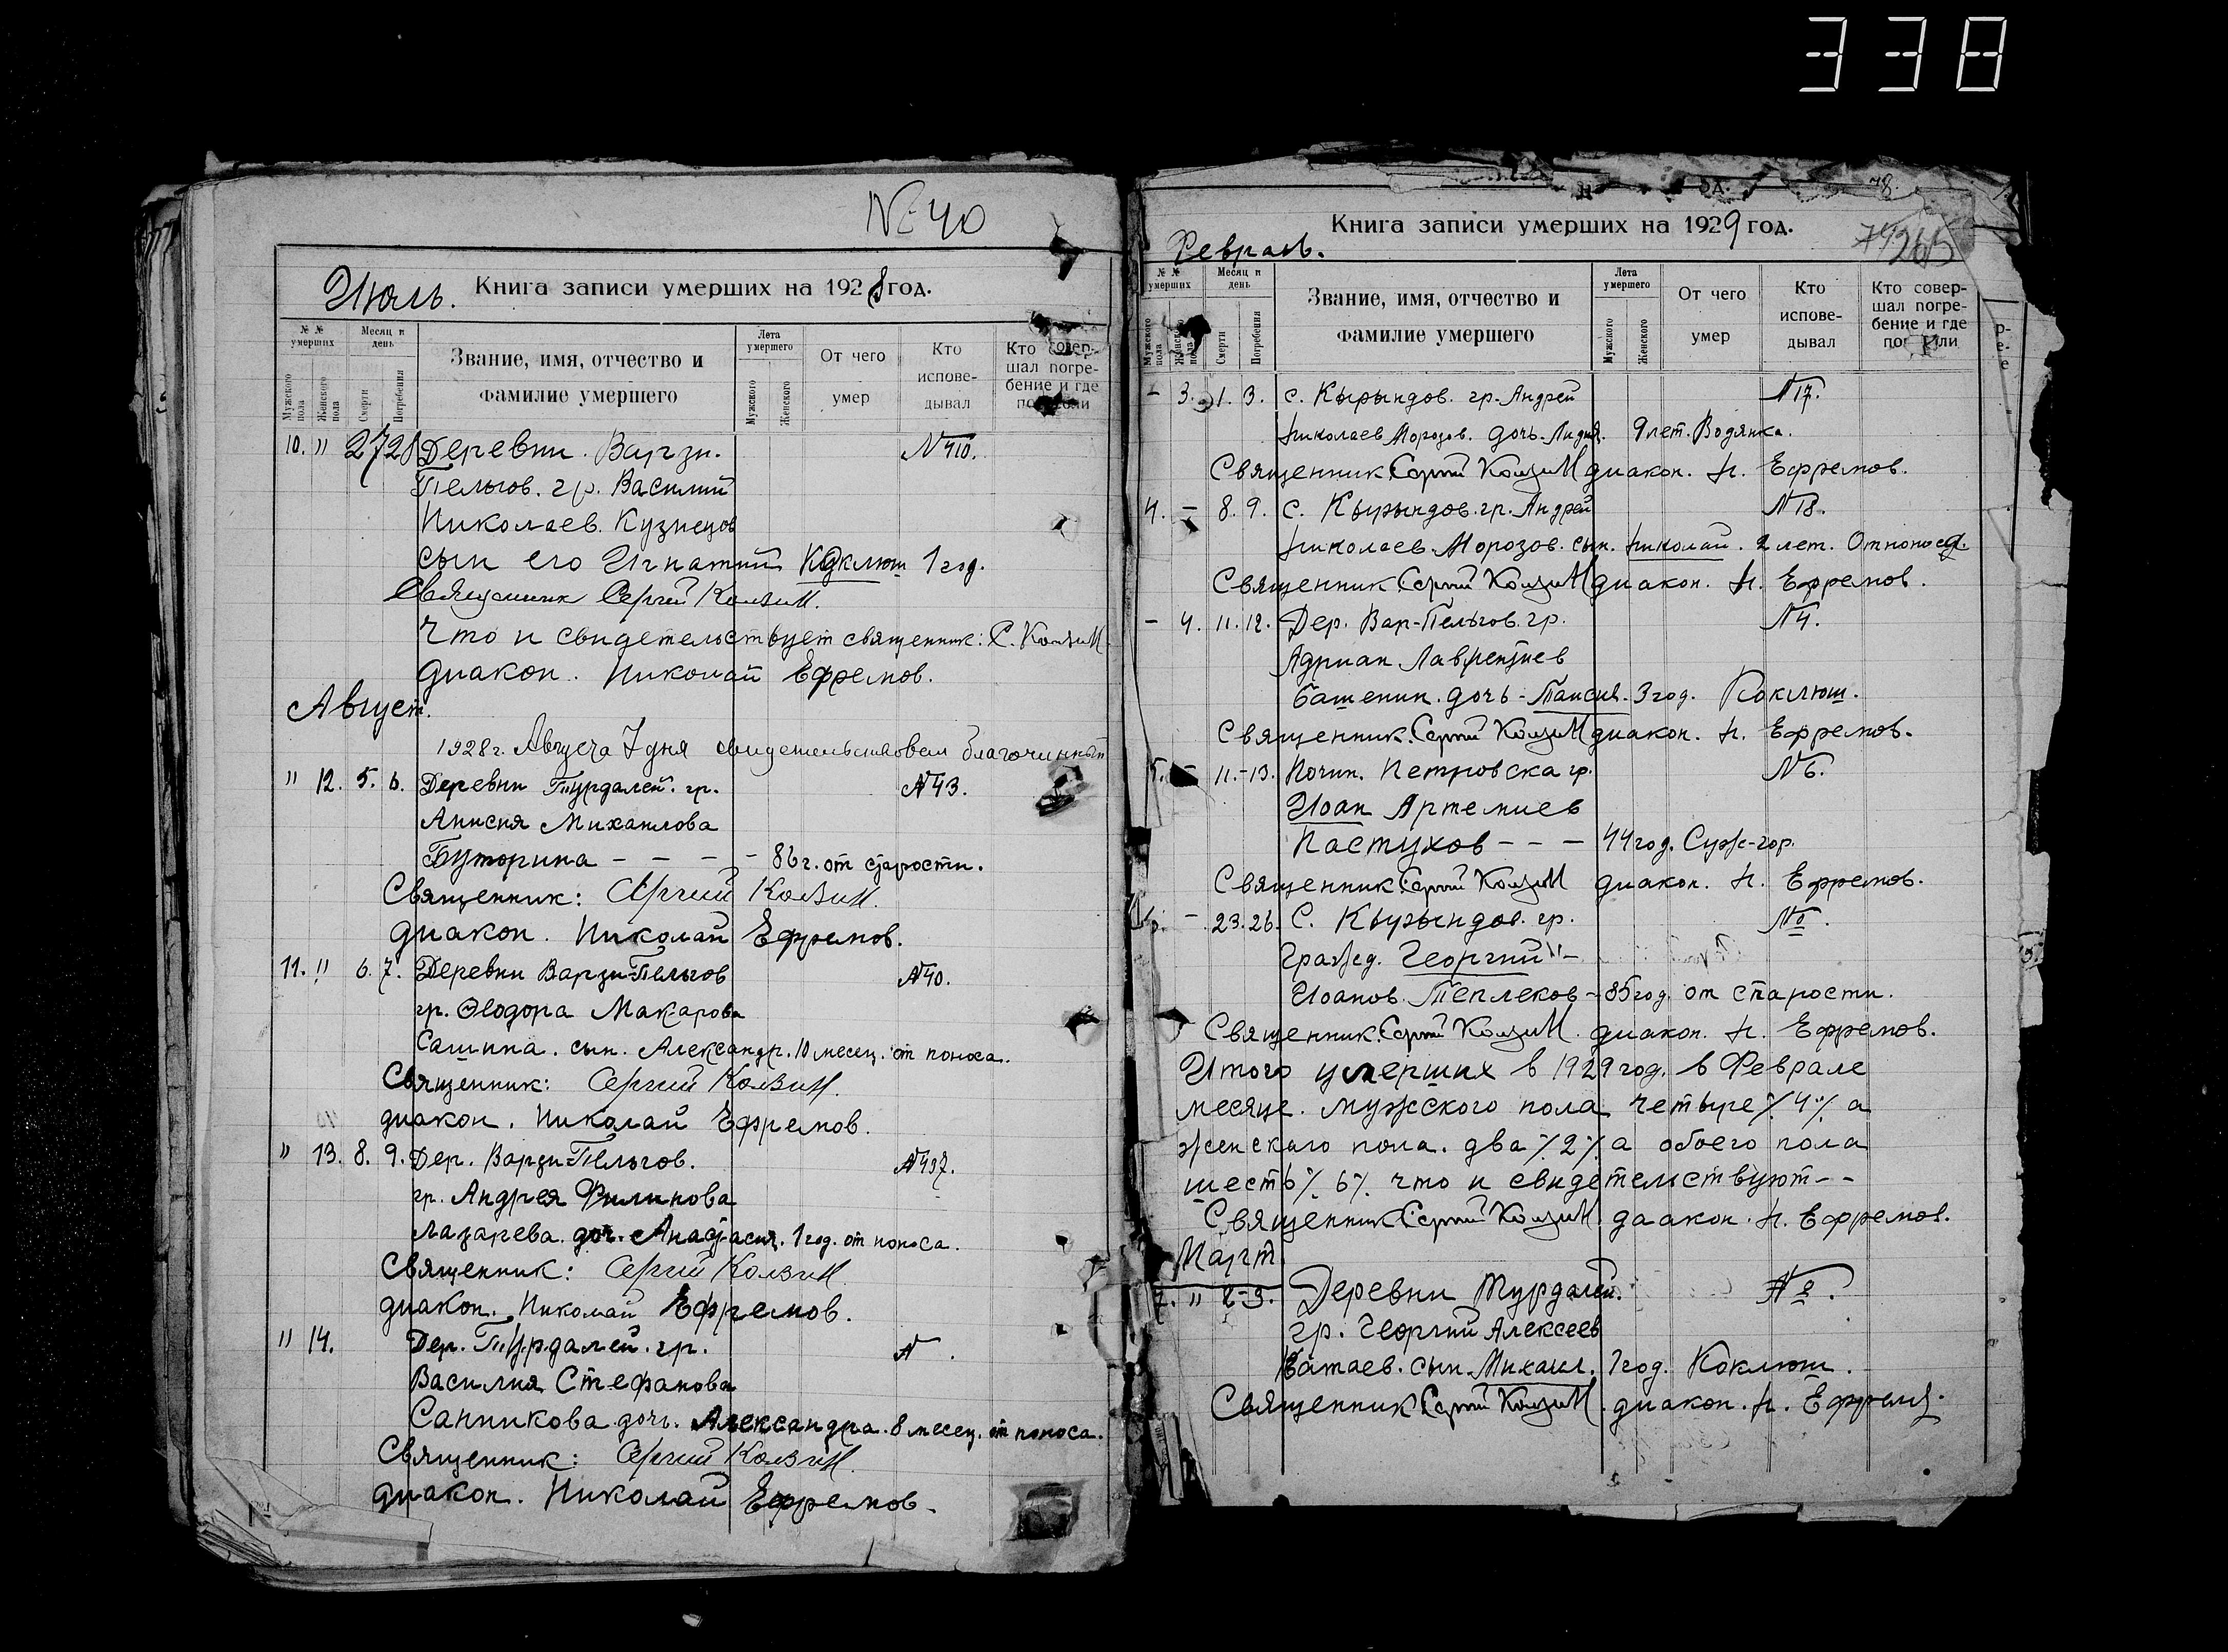 338
№ 40
Июль. Книга записи умерших на 1928 год.
№ № умерших
Месяц и день
Звание, имя, отчество и фамилие умершего
Лета умершего
От чего умер
Кто исповедывал
Кто совершал погребение и где
Мужского пола
Женского пола
Смерти
Погребения
Мужского
Женского
10. " 27 28 Деревни. Варзи. N 410.
Пельгов. гр. Василий
Николаев. Кузнецов
сын его Игнатий Коклюш 1 год.
Священник Сергий
Что и свидетельствует священник: С.
диакон. Николай Ефремов.
Август.
1928 г. Августа 7 дня свидетельствовал благочинный
" 12. 5. 6. Деревни Турдалей. гр. N 43.
Анисия Михаилова
Буторина - - - - 86 г. от старости.
Священник: Сергий
диакон. Николай Ефремов.
11. " 6. 7. Деревни Варзи-Пельгов N 40.
гр. Ѳеодора Макарова
Сашина. сын. Александр. 10 месец. от поноса.
Священник: Сергий
диакон. Николай Ефремов.
" 13. 8. 9. Дер. Варзи-Пельгов. N 437.
гр. Андрея Филипова
Лазарева. доч. Анастасия. 1 год. от поноса.
Священник: Сергий
диакон. Николай Ефремов.
" 14. Дер. Турдалей. гр. N .
Василия Стефанова
Санникова дочь. Александра. 8 месец. от поноса.
Священник: Сергий
диакон. Николай Ефремов.
78.
Книга записи умерших на 1929 год.
Февраль.
№ № умерших
Месяц и день
Звание, имя, отчество и фамилие умершего
Лета умершего
От чего умер
Кто исповедывал
Кто совершал погребение и где
Мужского пола
Женского пола
Смерти
Погребения
Мужского
Женского
- 3. 1. 3. С. Кырындов. гр. Андрей N 17.
Николаев Морозов. дочь. Лидия. 9 лет. Водянка.
Священник. Сергий диакон. Н. Ефремов.
4. - 8. 9. С. Кырындов. гр. Андрей N 18.
Николаев. Морозов. сын. Николай. 2 лет.
Священник. Сергий диакон. Н. Ефремов.
- 4. 11. 12. Дер. Вар-Пельгов. гр. N 4.
Адриан Лаврентиев
Башенин. дочь - Таисия. 3 год. Коклюш.
Священник. Сергий диакон. Н. Ефремов.
5. - 11.-13. Почин. Петровска гр. N 6.
Иоан Артемиев
Пастухов - - - 44 год. Суж-гор.
Священник. Сергий диакон. Н. Ефремов.
6. - 23. 26. С. Кырындов. гр.
Гражд. Георгий " -
Иоанов. Теплеков - 85 год. от старости.
Священник. Сергий диакон. Н. Ефремов.
Итого умерших в 1929 год. в Феврале
месяце. мужского пола четыре ٪ 4 ٪ а
женскаго пола. два ٪ 2 ٪ а обоего пола
шесть ٪ 6 ٪ что и свидетельствуют - -
Священник Сергий даакон. Н. Ефремов.
Март.
7. " 2-3. Деревни Турдалей.
гр. Георгий Алексеев
Катаев. сын. Михаил. 1 год. Коклюш.
Священник Сергий диакон. Н.